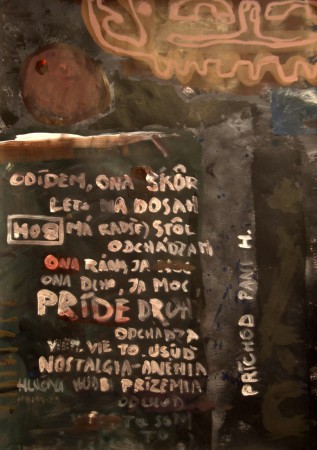 ODÍDEM, ONA SKÔR
LETO NA DOSAH
HOB MÁ RADŠEJ STÔL
ODCHÁDZAM
ONA RÁNA, JA
ONA DLHO, JA MOC,
PRÍDE DRUH
ODCHÁDZA
VIEM, VIE TO. USÚD
NOSTALGIA-ANÉMIA
PRÍZEMIA
ODCHOD
TO SOM
TO
PRÍCHOD PANI H.